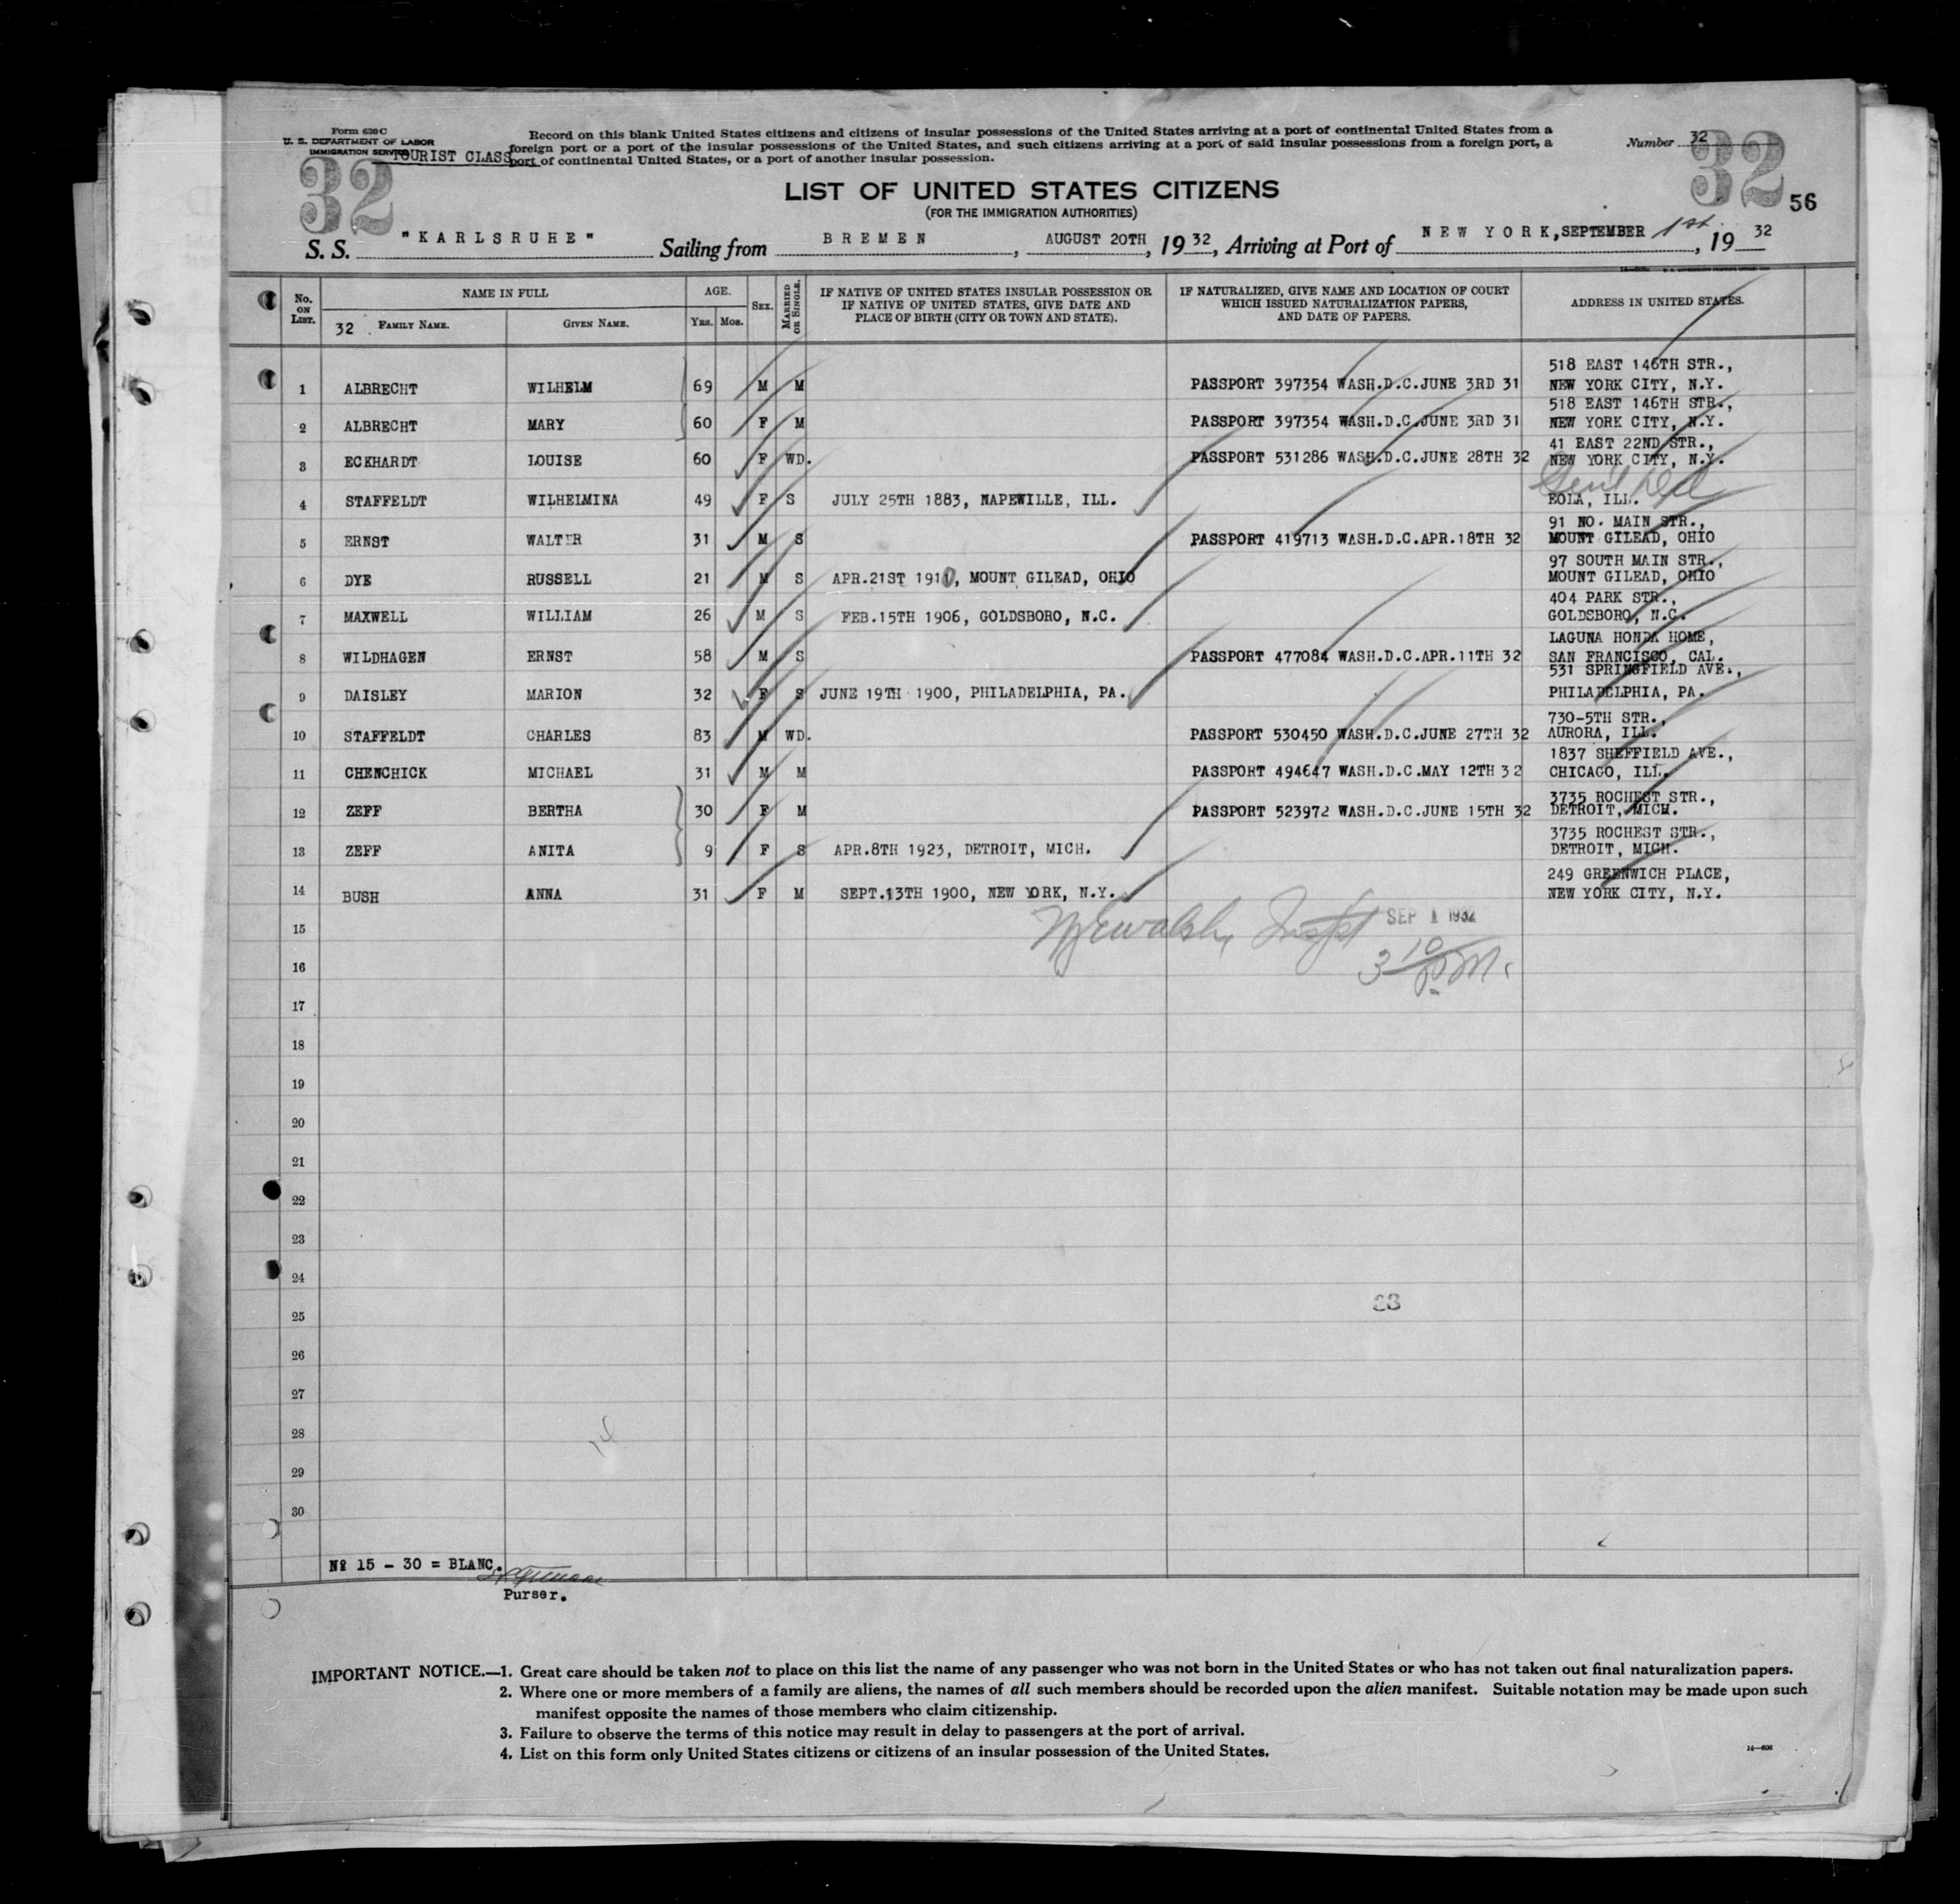 Form 630 C
U. S. DEPARTMENT OF LABOR
IMMIGRATION SERVICE
TOURIST CLASS
Record on this blank United States citizens and citizens of insular possessions of the United States arriving at a port of continental United States from a
foreign port or a port of the insular possessions of the United States, and such citizens arriving at a port of said insular possessions from a foreign port, a
port of continental United States, or a port of another insular possession.
Number 32
32
32
56
LIST OF UNITED STATES CITIZENS
(FOR THE IMMIGRATION AUTHORITIES)
S. S. "KARLSRUHE" Sailing from BREMEN, AUGUST 20TH, 1932, Arriving at Port of NEW YORK, SEPTEMBER 1st, 1932
No. ON LIST. NAME IN FULL AGE. SEX. MARRIED OR SINGLE. IF NATIVE OF UNITED STATES INSULAR POSSESSION OR IF NATIVE OF UNITED STATES, GIVE DATE AND PLACE OF BIRTH (CITY OR TOWN AND STATE). IF NATURALIZED, GIVE NAME AND LOCATION OF COURT WHICH ISSUED NATURALIZATION PAPERS, AND DATE OF PAPERS. ADDRESS IN UNITED STATES.
32 FAMILY NAME. GIVEN NAME. YRS. MOS.
1 ALBRECHT WILHELM 69 M M PASSPORT 397354 WASH.D.C.JUNE 3RD 31 518 EAST 146TH STR., NEW YORK CITY, N.Y.
2 ALBRECHT MARY 60 F M PASSPORT 397354 WASH.D.C.JUNE 3RD 31 518 EAST 146TH STR., NEW YORK CITY, N.Y.
3 ECKHARDT LOUISE 60 F WD. PASSPORT 531286 WASH.D.C.JUNE 28TH 32 41 EAST 22ND STR., NEW YORK CITY, N.Y.
4 STAFFELDT WILHELMINA 49 F S JULY 25TH 1883, NAPEWILLE, ILL. EOLA, ILL.
5 ERNST WALTER 31 M S PASSPORT 419713 WASH.D.C.APR.18TH 32 91 NO. MAIN STR., MOUNT GILEAD, OHIO
6 DYE RUSSELL 21 M S APR.21ST 1911, MOUNT GILEAD, OHIO 97 SOUTH MAIN STR., MOUNT GILEAD, OHIO
7 MAXWELL WILLIAM 26 M S FEB.15TH 1906, GOLDSBORO, N.C. 404 PARK STR., GOLDSBORO, N.C.
8 WILDHAGEN ERNST 58 M S PASSPORT 477084 WASH.D.C.APR.11TH 32 LAGUNA HONDA HOME, SAN FRANCISCO, CAL.
9 DAISLEY MARION 32 F S JUNE 19TH 1900, PHILADELPHIA, PA. 531 SPRINGFIELD AVE., PHILADELPHIA, PA.
10 STAFFELDT CHARLES 83 M WD. PASSPORT 530450 WASH.D.C.JUNE 27TH 32 730-5TH STR., AURORA, ILL.
11 CHENCHICK MICHAEL 31 M M PASSPORT 494647 WASH.D.C.MAY 12TH 32 1837 SHEFFIELD AVE., CHICAGO, ILL.
12 ZEFF BERTHA 30 F M PASSPORT 523972 WASH.D.C.JUNE 15TH 32 3735 ROCHEST STR., DETROIT, MICH.
13 ZEFF ANITA 9 F S APR.8TH 1923, DETROIT, MICH. 3735 ROCHEST STR., DETROIT, MICH.
14 BUSH ANNA 31 F M SEPT.13TH 1900, NEW YORK, N.Y. 249 GREENWICH PLACE, NEW YORK CITY, N.Y.
15 Walsh, Inspt SEP 1 1932
16 3 10 P.M.
17
18
19
20
21
22
23
24
25
26
27
28
29
30
14
Nº 15 - 30 = BLANC.
Purser.
IMPORTANT NOTICE.—1. Great care should be taken not to place on this list the name of any passenger who was not born in the United States or who has not taken out final naturalization papers.
2. Where one or more members of a family are aliens, the names of all such members should be recorded upon the alien manifest. Suitable notation may be made upon such
manifest opposite the names of those members who claim citizenship.
3. Failure to observe the terms of this notice may result in delay to passengers at the port of arrival.
4. List on this form only United States citizens or citizens of an insular possession of the United States.